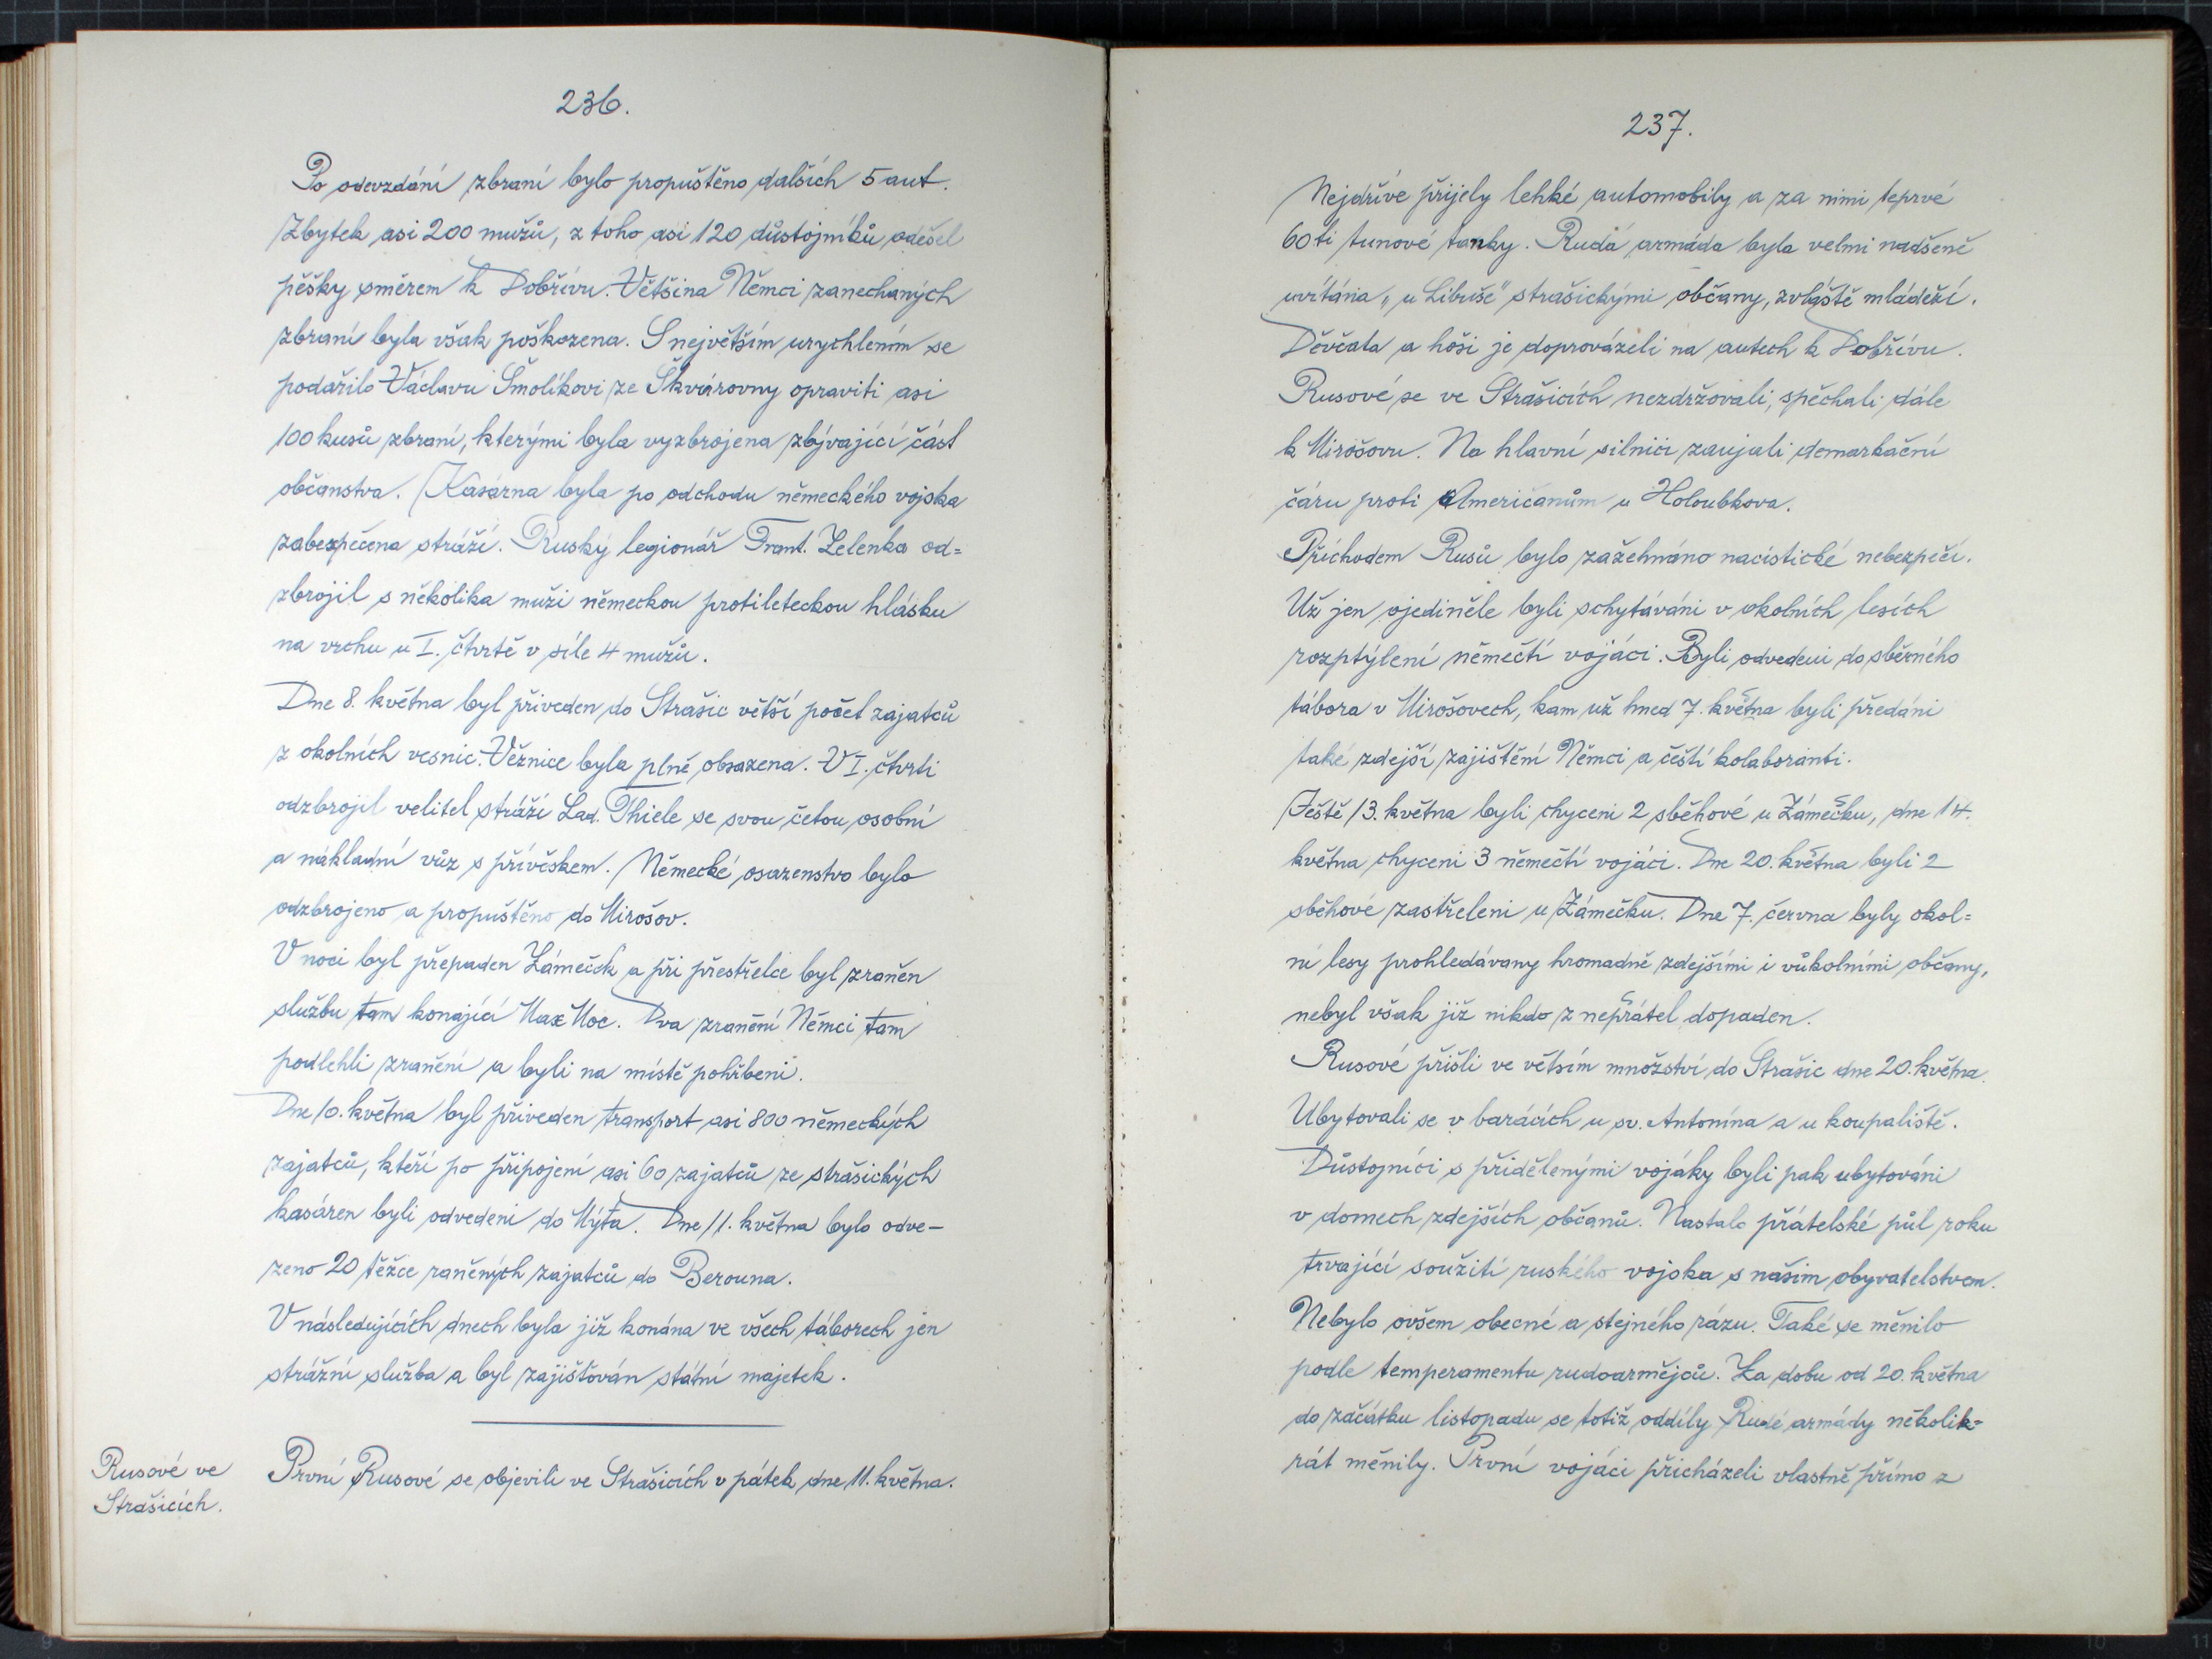 236.
Po odevzdání zbraní bylo propuštěno dalších 5 aut.
Zbytek asi 200 mužů, z toho asi 120 důstojníků odešel
pěšky směrem k Dobřívu. Většina Němci zanechaných
zbraní byla však poškozena. S největším urychlením se
podařilo Václavu Šmolíkovi ze Škvárovny opraviti asi
100 kusů zbraní, kterými byla vyzbrojena zbývající část
občanstva. Kasárna byla po odchodu německého vojska
zabezpečena stráží. Ruský legionář Frant. Zelenka od=
zbrojil s několika muži německou protileteckou hlásku
na vrchu u I. čtvrtě v síle 4 mužů.
Dne 8. května byl přiveden do Strašic větší počet zajatců
z okolních vesnic. Věznice byla plně obsazena. V I. čtvrti
odzbrojil velitel stráží Lad. Thiele se svou četou osobní
a nákladní vůz s přívěskem. Německé osazenstvo bylo
odzbrojeno a propuštěno do Mirošov.
V noci byl přepaden Zámeček a při přestřelce byl zraněn
službu tam konající Max Moc. Dva zranění Němci tam
podlehli zranění a byli na místě pohřbeni.
Dne 10. května byl přiveden transport asi 800 německých
zajatců, kteří po připojení asi 60 zajatců ze strašických
kasáren byli odvedeni do Mýta. Dne 11. května bylo odve-
zeno 20 těžce raněných zajatců do Berouna.
V následujících dnech byla již konána ve všech táborech jen
strážní služba a byl zajišťován státní majetek.
Rusové ve
Strašicích.
První Rusové se objevili ve Strašicích v pátek dne 11. května.
237.
Nejdříve přijely lehké automobily a za nimi teprvé
60 ti tunové tanky. Rudá armáda byla velmi nadšeně
uvítána „u Libuše" strašickými občany, zvláště mládeží.
Děvčata a hoši je doprovázeli na autech k Dobřívu.
Rusové se ve Strašicích nezdržovali, spěchali dále
k Mirošovu. Na hlavní silnici zaujali demarkační
čáru proti Američanům u Holoubkova.
Příchodem Rusů bylo zažehnáno nacistické nebezpečí.
Už jen ojediněle byli schytáváni v okolních lesích
rozptýlení němečtí vojáci. Byli odvedeni do sběrného
tábora v Mirošovech, kam už hned 7. května byli předáni
také zdejší zajištění Němci a čeští kolaboranti.
Ještě 13. května byli chyceni 2 sběhové u Zámečku, dne 14.
května chyceni 3 němečtí vojáci. Dne 20. května byli 2
sběhové zastřeleni u Zámečku. Dne 7. června byly okol=
ní lesy prohledávany hromadně zdejšími i vůkolními občany,
nebyl však již nikdo z nepřátel dopaden.
Rusové přišli ve větším množství do Strašic dne 20. května.
Ubytovali se v barácích u sv. Antonína a u koupaliště.
Důstojníci s přidělenými vojáky byli pak ubytováni
v domech zdejších občanů. Nastalo přátelské půl roku
trvající soužití ruského vojska s naším obyvatelstvem.
Nebylo ovšem obecné a stejného rázu. Také se měnilo
podle temperamentu rudoarmějců. Za dobu od 20. května
do začátku listopadu se totiž oddíly Rudé armády několik=
rát měnily. První vojáci přicházeli vlastně přímo z